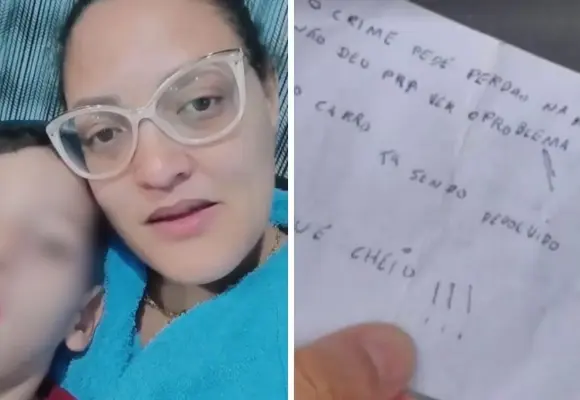 O CRIME PEDE PERDÃO NA
NÃO DEU PRA VER O PROBLEMA
O CARRO
TÁ SENDO DEVOLVIDO
CHEIO !!!